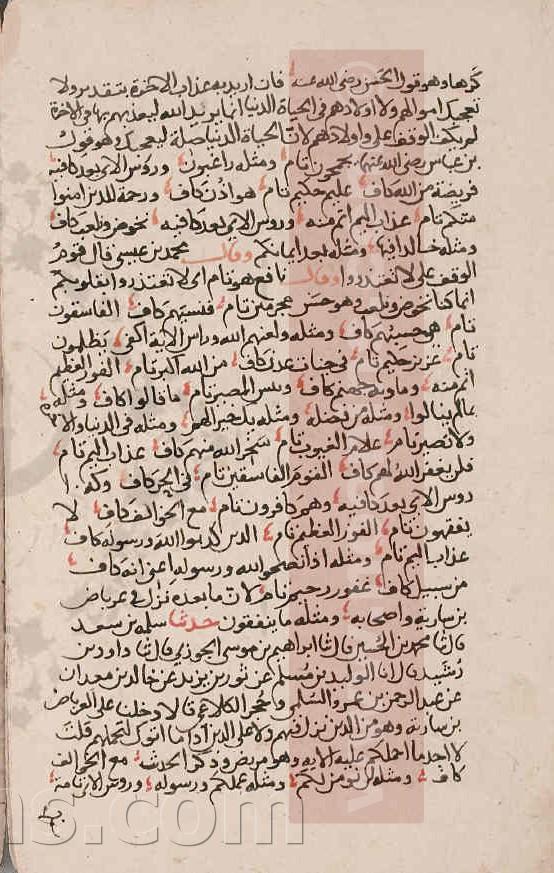 كرها وهو قول الحسن رضي الله عنه فان اريد به عذاب الاخرة بتقدير ولا
تعجبك اموالهم ولا اولادهم في الحياة الدنيا انما يريد الله ليعذبهم بها في الاخرة
لم يكف الوقف على ولا اولادهم لان الحياة الدنيا صلة ليعجبك وهو قول
بن عباس رضي الله عنهما يجمحون تام ومثله راغبون وروس الاي بعد كافية
فريضة من الله كاف عليم حكيم تام هو اذن كاف ورحمة للذين امنوا
منكم تام عذاب اليم اتم منه وروس الاي بعد كافية نخوض ونلعب كاف
ومثله خالدا فيها ومثله بعد ايمانكم وقال محمد بن عيسى قال قوم
الوقف على لا تعتذروا وقال نافع هو تام اي لا تعتذروا بقولكم
انما كنا نخوض ونلعب وهو حسن مجرمين تام فنسيهم كاف الفاسقون
تام هي حسبهم كاف ومثله ولعنهم الله وراس الاية اكفى يظلمون
تام عزيز حكيم تام في جنات عدن كاف من الله اكبر تام الفوز العظيم
اتم منه وماويهم جهنم كاف وبيس المصير تام ما قالوا كاف ومثله
بما لم ينالوا ومثله من فضله ومثله يك خيرا لهم ومثله في الدنيا والاخرة
ولا نصير تام علام الغيوب تام سخر الله منهم كاف عذاب اليم تام
فلن يغفر الله لهم كاف القوم الفاسقين تام في الحر كاف وكذا
روس الاي بعد كافية وهم كافرون تام مع الخوالف كاف لا
يفقهون تام الفوز العظيم تام الذين كذبوا الله ورسوله كاف
عذاب اليم تام ومثله اذا نصحوا لله ورسوله اعني انه كاف
من سبيل كاف غفور رحيم تام لان ما بعده نزل في عرباض
بن سارية واصحابه ومثله ما ينفقون حدثنا سلمة بن سعد
قال ثنا محمد بن الحسين قال ثنا ابراهيم بن موسى الجوزي قال ثنا داود بن
رشيد قال انا الوليد بن مسلم عن ثور بن يزيد عن خالد بن معدان
عن عبد الرحمن بن عمرو السلمي وحجر الكلاعي قالا دخلنا على العرباض
بن سارية وهو من الذين نزل فيهم ولا على الذين اذا ما اتوك لتحملهم قلت
لا اجد ما احملكم عليه الاية وهو مريض وذكرا الحديث مع الخوالف
كاف ومثله لن نومن لكم ومثله عملكم ورسوله وروس الاي تامة
ns.com